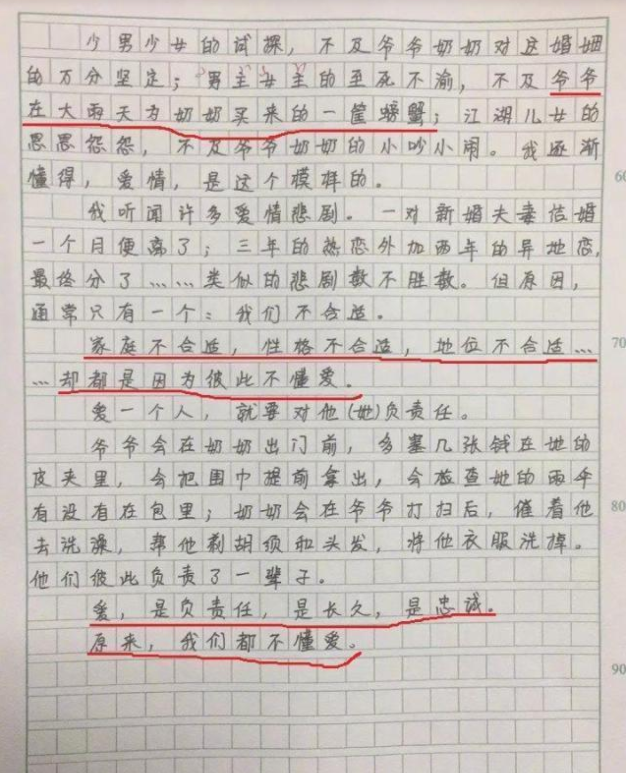 少男少女的试探，不及爷爷奶奶对这婚姻
的万分坚定；男主女主的至死不渝，不及爷爷
在大雨天为奶奶买来的一筐螃蟹；江湖儿女的
恩恩怨怨，不及爷爷奶奶的小吵小闹。我逐渐
懂得，爱情，是这个模样的。
60
我听闻许多爱情悲剧。一对新婚夫妻结婚
一个月便离了；三年的热恋外加两年的异地恋，
最终分了……类似的悲剧数不胜数。但原因，
通常只有一个：我们不合适。
家庭不合适，性格不合适，地位不合适…
70
…却都是因为彼此不懂爱。
爱一个人，就要对他（她）负责任。
爷爷会在奶奶出门前，多塞几张钱在她的
皮夹里，会把围巾提前拿出，会检查她的雨伞
有没有在包里；奶奶会在爷爷打扫后，催着他
80
去洗澡，帮他剃胡须和头发，将他衣服洗掉。
他们彼此负责了一辈子。
爱，是负责任，是长久，是忠诚。
原来，我们都不懂爱。
90